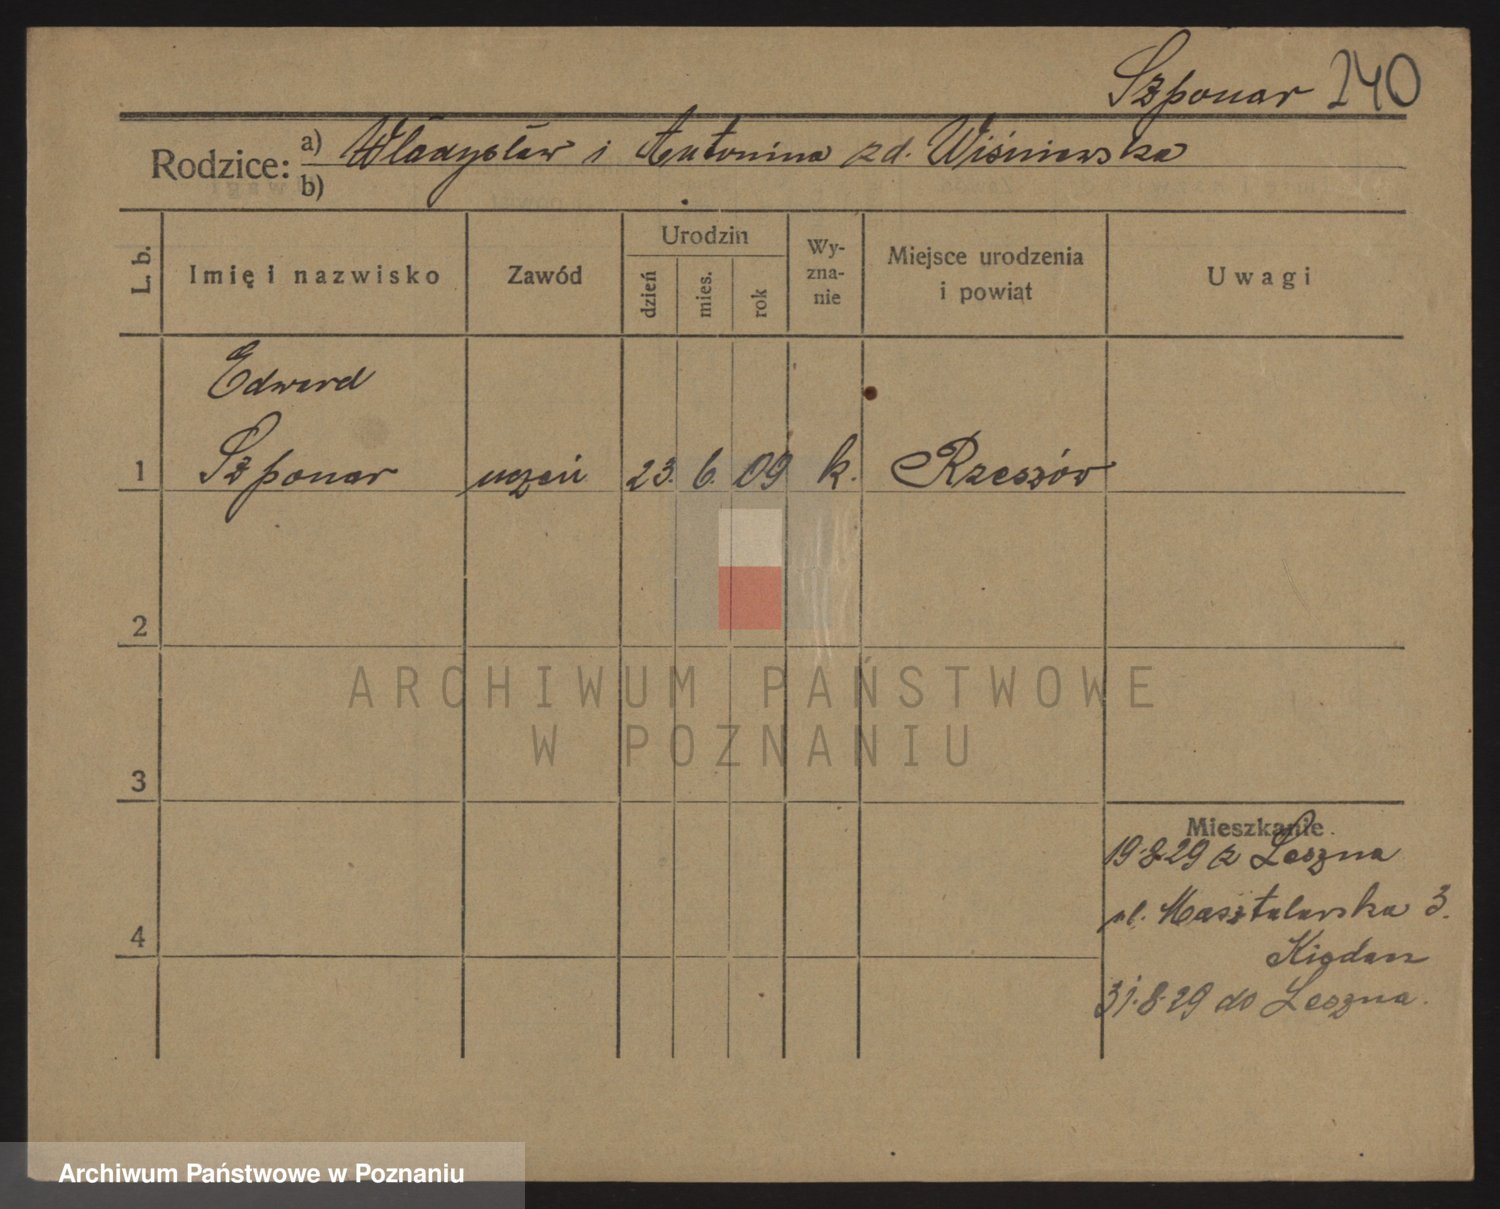 Szponar 240
Rodzice: a) Władysław i Antonina zd. Wiśniewska
b)
L. b.
Imię i nazwisko
Zawód
Urodzin
dzień
mies.
rok
Wy-
zna-
nie
Miejsce urodzenia
i powiat
Uwagi
Edward
1 Szponar uczeń 23. 6. 09 k. Rzeszów
2
ARCHIWUM PAŃSTWOWE
W POZNANIU
3
Mieszkanie
19.8.29 z Leszna
ul. Masztalarska 3.
4
31.8.29 do Leszna.
Archiwum Państwowe w Poznaniu